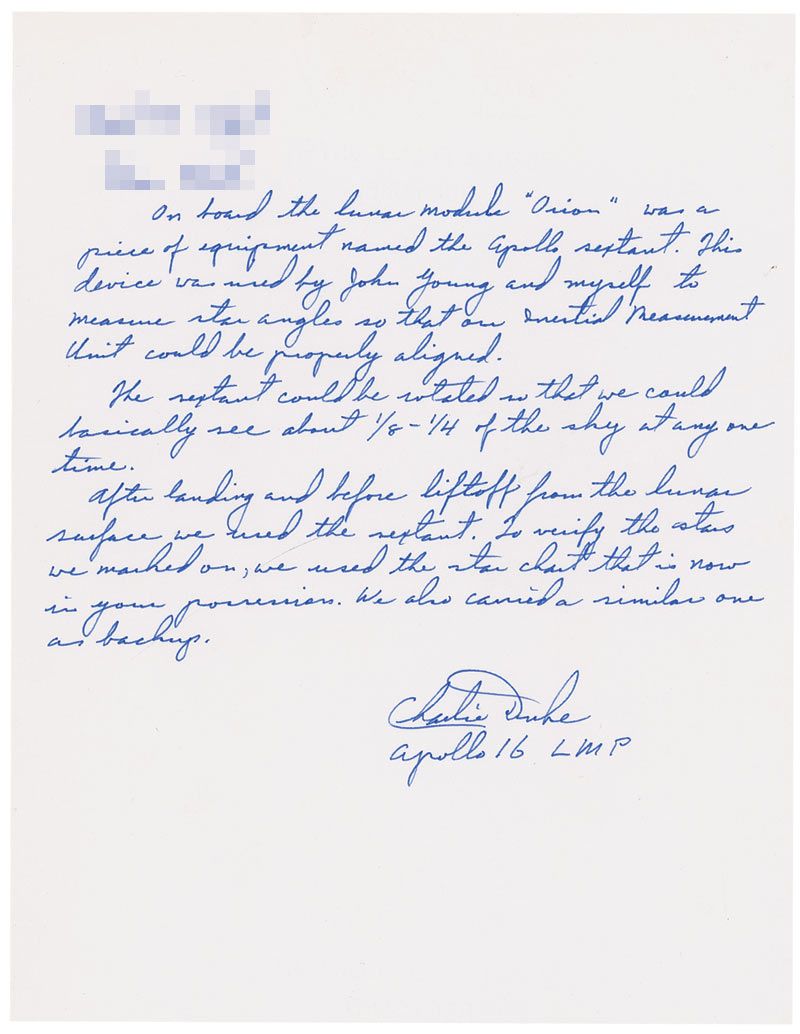 On board the lunar module "Orion" was a
piece of equipment named the Apollo sextant. This
device was used by John Young and myself to
measure star angles so that our Inertial Measurement
Unit could be properly aligned.
The sextant could be rotated so that we could
basically see about 1/8 - 1/4 of the sky at any one
time.
After landing and before liftoff from the lunar
surface we used the sextant. To verify the stars
we marked on, we used the star chart that is now
in your possession. We also carried a similar one
as backup.
Charlie Duke
Apollo 16 LMP